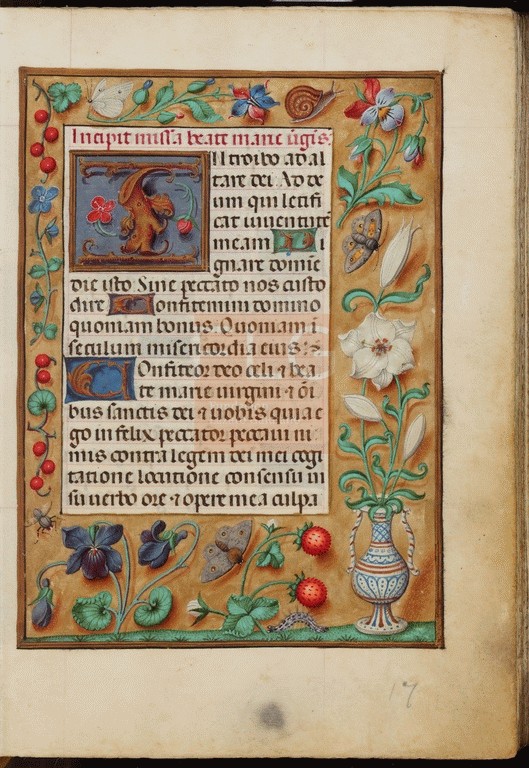 Incipit missa beate marie v̄gis:
INtroibo ad al
tare dei. Ad de
um qui letifi
cat iuuentutē
meam Di
gnare domīe
die isto. Sine peccato nos custo
dire Confitemini domino
quoniam bonus. Quoniam ī
seculum misericordia eius :
Confiteor deo celi ⁊ bea
te marie virgini ⁊ oī
bus sanctis dei ⁊ uobis quia e
go infelix peccator peccaui ni
mis contra legem dei mei cogi
tatione locutione consensu ui
su uerbo ore ⁊ opere mea culpa
17